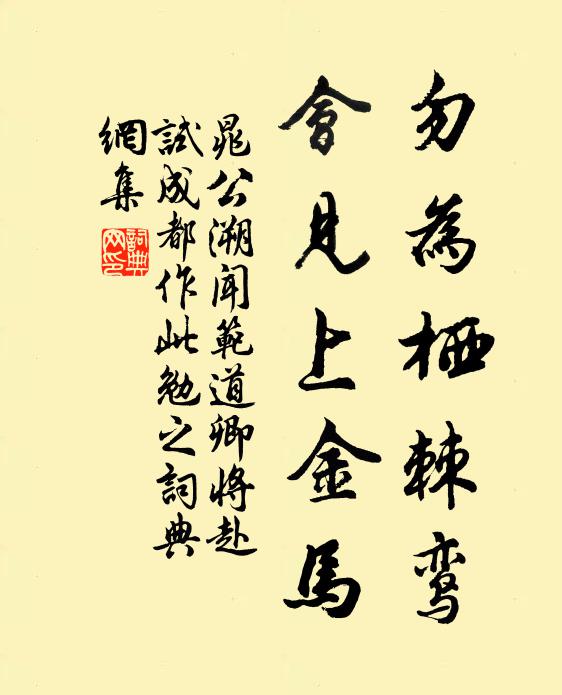 勿為栖棘鸾
會見上金馬
晁公溯聞範道卿將赴
試成都作此勉之詞典
網集
詞典
网印